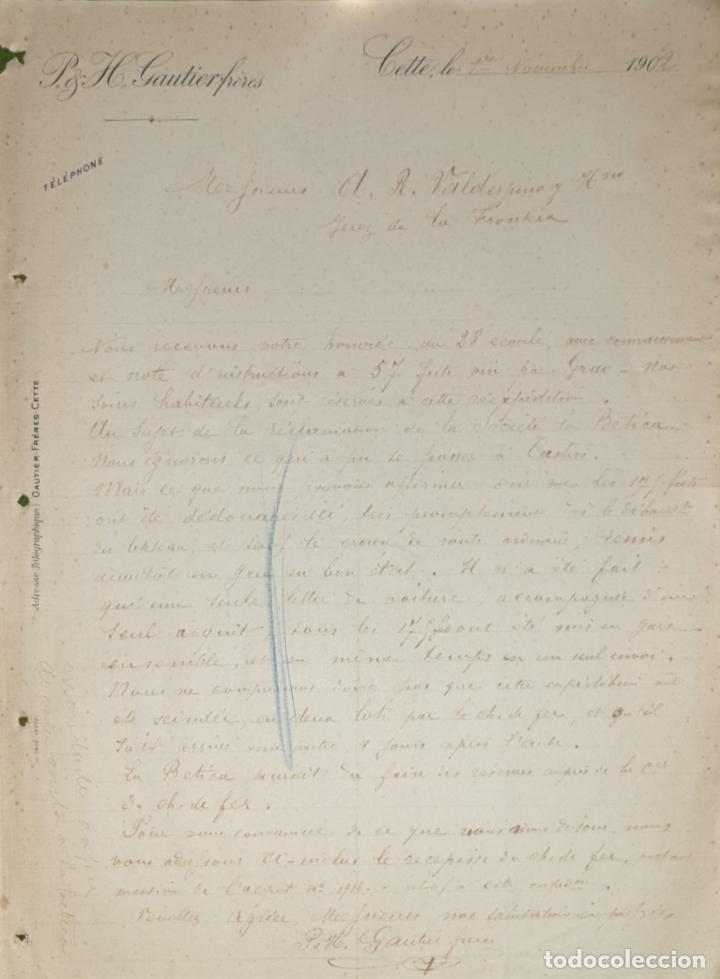 P. & H. Gautier frères
Cette, le 1er Novembre 1902
TÉLÉPHONE
Messieurs A. R. Valdespino y Hno
Jerez de la Frontera
Messieurs
Nous recevons votre honorée du 28 écoulé, avec connaissement
et note d'instructions à 57 futs vin par Grao - Nos
soins habituels sont réservés à cette réexpédition.
Au sujet de la réclamation de la Société la Betica
nous ignorons ce qui a pu se passer à Castres.
Mais ce que nous pouvons affirmer c'est que les 17 futs
ont été dédouanés ici, très promptement dès le débarqt
du bateau, et sauf le creux de route ordinaire, remis
aussitôt en gare en bon état. Il n'a été fait
qu'une seule lettre de voiture, accompagnée d'un
seul acquit, tous les 17 ont été mis en gare
ensemble, et en même temps en un seul envoi.
Nous ne comprenons donc pas que cette expédition ait
été scindée en deux lots par le ch. de fer, et qu'il
soit arrivé une partie 8 jours après l'autre.
La Betica aurait du faire des réserves auprès de la Cie
du ch. de fer.
Pour vous convaincre de ce que nous vous disons, nous
vous adressons ci-inclus le recepisse du ch. de fer,
mention de l'acquit no
Veuillez agréer, Messieurs nos salutations empressées
P. & H. Gautier frères
Adresse Télégraphique: GAUTIER-FRÈRES-CETTE
todocoleccion